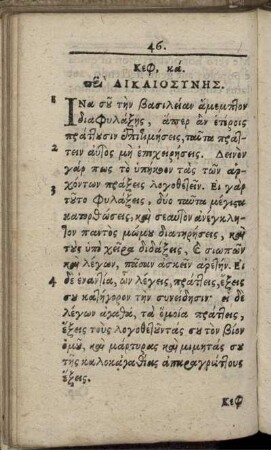 46.
Κεφ, κά.
περὶ ΔΙΚΑΙΟΣΥΝΗΣ.
1 ἽΝα σου τὴν βασιλείαν ἄμεμπτον
διαφυλάξῃς, ἅπερ ἂν ἑτέροις
πράττουσιν ἐπιτιμήσεις, ταῦτα πράτ-
2 τειν αὐτὸς μὴ ἐπιχειρήσεις. Δεινὸν
γάρ πως τὸ ὑπήκοον τὰς τῶν ἀρ-
3 χόντων πράξεις λογοθετεῖν. Εἰ γὰρ
τοῦτο φυλάξεις, δύο ταῦτα μέγιστα
κατορθώσεις, καὶ σεαυτὸν ἀνέγκλη-
τον παντὸς μώμου διατηρήσεις, καὶ
τοὺς ὑπὸ χεῖρα διδάξεις, ἐ σιωπῶν
καὶ λέγων, πᾶσαν ἀσκεῖν ἀρετήν. Εἰ
4 δὲ ἐναντία, ὧν λέγεις, πράττεις, ἕξεις
σου κατήγορον τὴν συνείδησιν· εἰ δὲ
λέγων ἀγαθὰ, τὰ ὅμοια πράττεις,
ἕξεις τοὺς λογοθετοῦντας σου τὸν βίον
ὁμοῦ, καὶ μάρτυρας καὶ μιμητὰς σου
τῆς καλοκἀγαθίας ἀπαραγράπτους
ἕξεις.
Κεφ